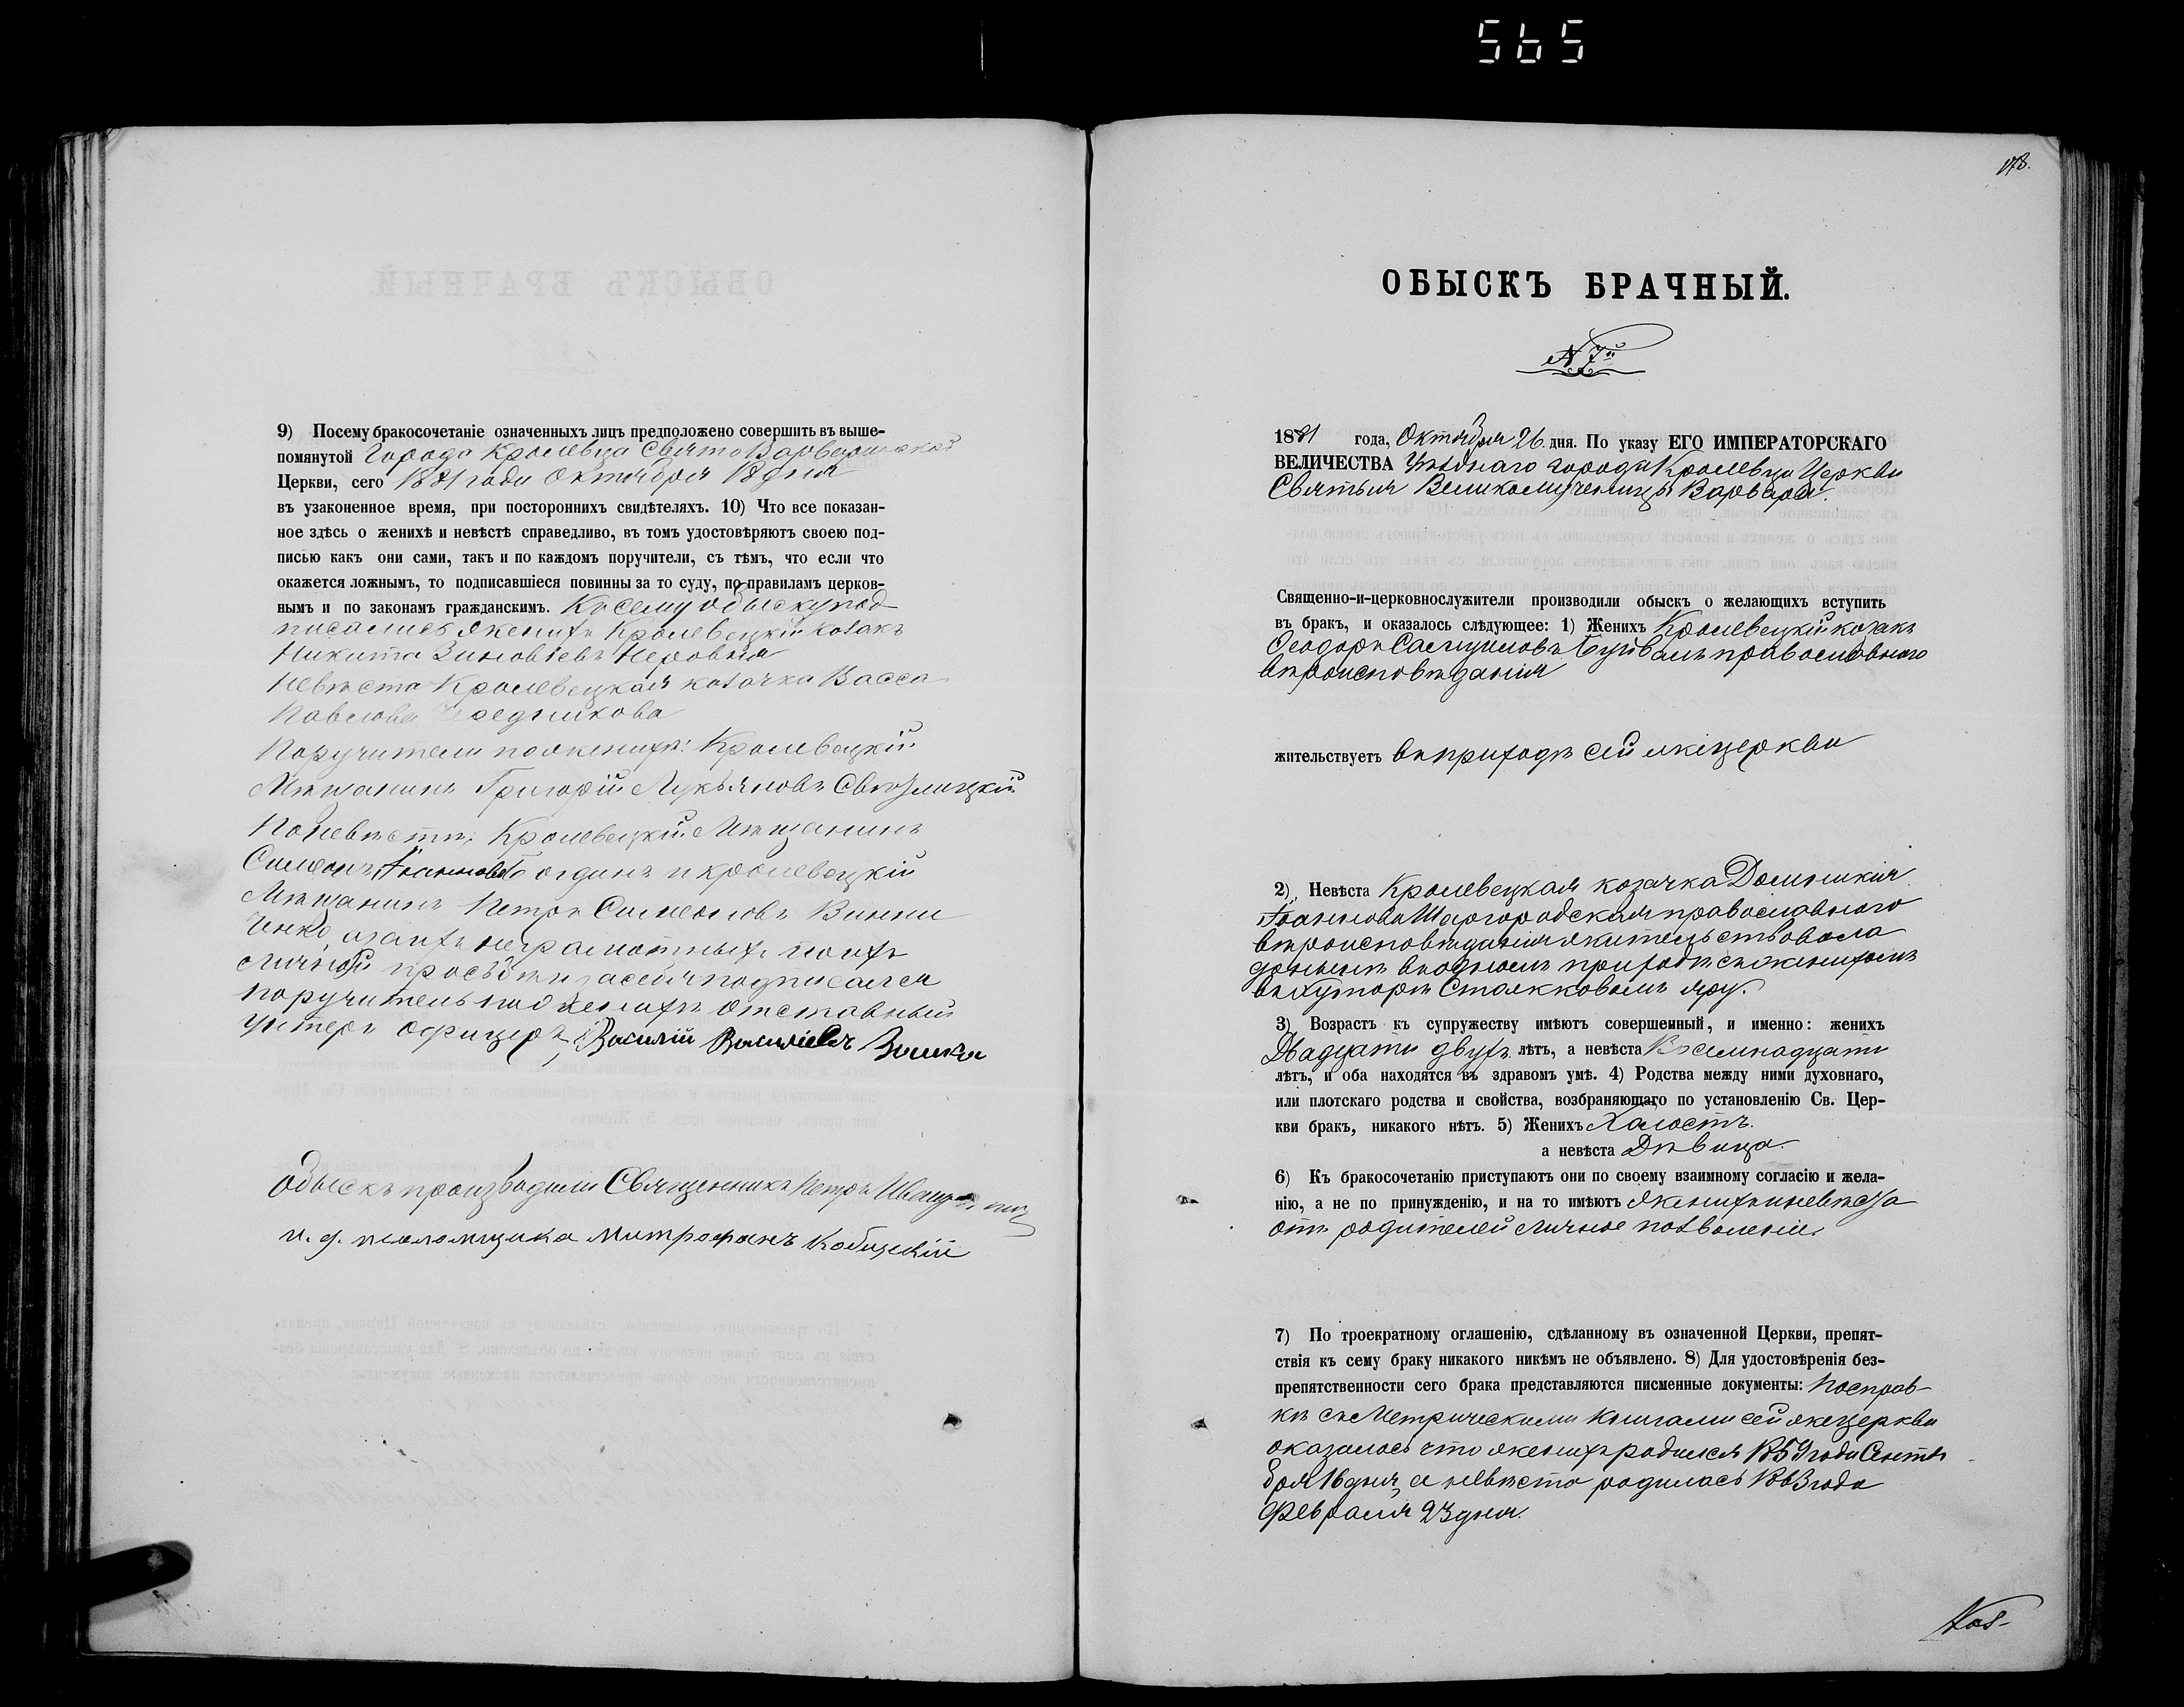 565
178.
9) Посему бракосочетаніе означенныхъ лицъ предположено совершить въ выше-
помянутой Города Кролевца Свято Варваринской
Церкви, сего 1881 года Октября 18 дня
въ узаконенное время, при постороннихъ свидѣтеляхъ. 10) Что все показан-
ное здѣсь о женихѣ и невѣстѣ справедливо, въ томъ удостовѣряютъ своею под-
писью какъ они сами, такъ и по каждомъ поручители, съ тѣмъ, что если что
окажется ложнымъ, то подписавшіеся повинны за то суду, по правиламъ церков-
нымъ и по законамъ гражданскимъ. Ксему обыску под-
писались женихъ Кролевецкій козакъ
Никита Зиновіевъ
Невѣста Кролевецкая козачка Васса
Павлова Чередникова
Поручители по женихѣ: Кролевецкій
Мѣщанинъ Григорій Лукьяновъ
По невѣстѣ, Кролевецкій Мѣщанинъ
Симеонъ Іоанновъ и кролевецкій
Мѣщанинъ Петръ Симеоновъ Винни
ченко, а за ихъ неграмотныхъ по ихъ
личной просьбѣ и за себя подписался
поручитель по женихѣ отставный
унтеръ офицеръ Василій Василіевъ
Обыскъ производили Священникъ Петръ
и. д. псаломщика Митрофанъ
ОБЫСКЪ БРАЧНЫЙ.
N 7й
1881 года, Октября 26 дня. По указу ЕГО ИМПЕРАТОРСКАГО
ВЕЛИЧЕСТВА Уѣзднаго города Кролевца Церкви
Святыя Великомученицы Варвары.
Священно-и-церковнослужители производили обыскъ о желающихъ вступить
въ бракъ, и оказалось слѣдующее: 1) Женихъ Кролевецкій козакъ
Ѳеодоръ Самуиловъ православнаго
вѣроисповѣданія
жительствуетъ въ приходѣ сей же церкви
2) Невѣста Кролевецкая козачка Домникія
Іоаннова Шаргородская православнаго
вѣроисповѣданія жительствовала
донынѣ въ одномъ приходѣ съ женихомъ
въ хуторѣ яру.
3) Возрастъ къ супружеству имѣютъ совершенный, и именно: женихъ
Двадцати двухъ лѣтъ, а невѣста Восемнадцати
лѣтъ, и оба находятся въ здравомъ умѣ. 4) Родства между ними духовнаго,
или плотскаго родства и свойства, возбраняющаго по установленію Св. Цер-
кви бракъ, никакого нѣтъ. 5) Женихъ Холостъ.
а невѣста Дѣвица.
6) Къ бракосочетанію приступаютъ они по своему взаимному согласію и жела-
нію, а не по принужденію, и на то имѣютъ женихъ и невѣста
отъ родителей личное позволеніе.
7) По троекратному оглашенію, сдѣланному въ означенной Церкви, препят-
ствія къ сему браку никакого никѣмъ не объявлено. 8) Для удостовѣренія без-
препятственности сего брака представляются писменные документы: По справ-
кѣ съ Метрическими книгами сей же церкви
оказалось что женихъ родился 1859 года Сентя
бря 16 дня, а невѣста родилась 1863 года
Февраля 23 дня.